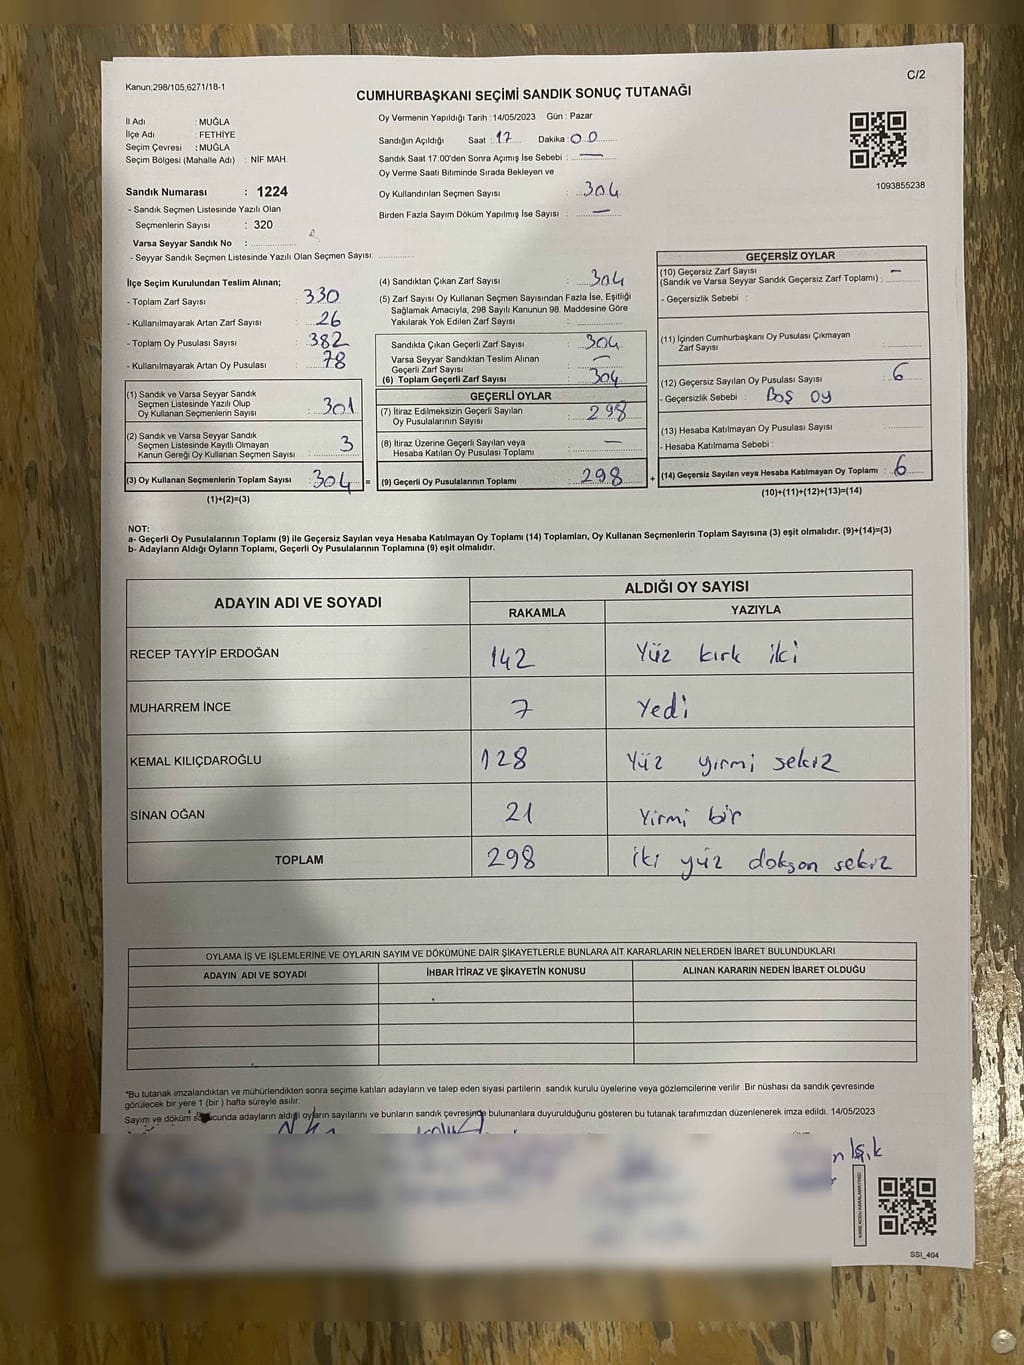 Kanun;298/105,6271/18-1
C/2
CUMHURBAŞKANI SEÇİMİ SANDIK SONUÇ TUTANAĞI
İl Adı : MUĞLA
İlçe Adı : FETHİYE
Seçim Çevresi : MUĞLA
Seçim Bölgesi (Mahalle Adı) : NİF MAH.
Sandık Numarası : 1224
- Sandık Seçmen Listesinde Yazılı Olan
Seçmenlerin Sayısı : 320
Varsa Seyyar Sandık No :
- Seyyar Sandık Seçmen Listesinde Yazılı Olan Seçmen Sayısı:
Oy Vermenin Yapıldığı Tarih :14/05/2023 Gün : Pazar
Sandığın Açıldığı Saat : 17 Dakika : 00
Sandık Saat 17:00'den Sonra Açımış İse Sebebi : —
Oy Verme Saati Bitiminde Sırada Bekleyen ve
Oy Kullandırılan Seçmen Sayısı : 304
Birden Fazla Sayım Döküm Yapılmış İse Sayısı : —
1093855238
İlçe Seçim Kurulundan Teslim Alınan;
- Toplam Zarf Sayısı : 330
- Kullanılmayarak Artan Zarf Sayısı : 26
- Toplam Oy Pusulası Sayısı : 382
- Kullanılmayarak Artan Oy Pusulası : 78
(1) Sandık ve Varsa Seyyar Sandık
Seçmen Listesinde Yazılı Olup
Oy Kullanan Seçmenlerin Sayısı : 301
(2) Sandık ve Varsa Seyyar Sandık
Seçmen Listesinde Kayıtlı Olmayan
Kanun Gereği Oy Kullanan Seçmen Sayısı : 3
(3) Oy Kullanan Seçmenlerin Toplam Sayısı : 304 =
(1)+(2)=(3)
(4) Sandıktan Çıkan Zarf Sayısı : 304
(5) Zarf Sayısı Oy Kullanan Seçmen Sayısından Fazla İse, Eşitliği
Sağlamak Amacıyla, 298 Sayılı Kanunun 98. Maddesine Göre
Yakılarak Yok Edilen Zarf Sayısı :
Sandıkta Çıkan Geçerli Zarf Sayısı : 304
Varsa Seyyar Sandıktan Teslim Alınan
Geçerli Zarf Sayısı : —
(6) Toplam Geçerli Zarf Sayısı : 304
GEÇERLİ OYLAR
(7) İtiraz Edilmeksizin Geçerli Sayılan
Oy Pusulalarının Sayısı : 298
(8) İtiraz Üzerine Geçerli Sayılan veya
Hesaba Katılan Oy Pusulası Toplamı : —
(9) Geçerli Oy Pusulalarının Toplamı : 298 +
GEÇERSİZ OYLAR
(10) Geçersiz Zarf Sayısı
(Sandık ve Varsa Seyyar Sandık Geçersiz Zarf Toplamı) : —
- Geçersizlik Sebebi :
(11) İçinden Cumhurbaşkanı Oy Pusulası Çıkmayan
Zarf Sayısı :
(12) Geçersiz Sayılan Oy Pusulası Sayısı : 6
- Geçersizlik Sebebi : Boş oy
(13) Hesaba Katılmayan Oy Pusulası Sayısı :
- Hesaba Katılmama Sebebi :
(14) Geçersiz Sayılan veya Hesaba Katılmayan Oy Toplamı : 6
(10)+(11)+(12)+(13)=(14)
NOT:
a- Geçerli Oy Pusulalarının Toplamı (9) ile Geçersiz Sayılan veya Hesaba Katılmayan Oy Toplamı (14) Toplamları, Oy Kullanan Seçmenlerin Toplam Sayısına (3) eşit olmalıdır. (9)+(14)=(3)
b- Adayların Aldığı Oyların Toplamı, Geçerli Oy Pusulalarının Toplamına (9) eşit olmalıdır.
ADAYIN ADI VE SOYADI ALDIĞI OY SAYISI
RAKAMLA YAZIYLA
RECEP TAYYİP ERDOĞAN 142 Yüz kırk iki
MUHARREM İNCE 7 Yedi
KEMAL KILIÇDAROĞLU 128 Yüz yirmi sekiz
SİNAN OĞAN 21 Yirmi bir
TOPLAM 298 iki yüz doksan sekiz
OYLAMA İŞ VE İŞLEMLERİNE VE OYLARIN SAYIM VE DÖKÜMÜNE DAİR ŞİKAYETLERLE BUNLARA AİT KARARLARIN NELERDEN İBARET BULUNDUKLARI
ADAYIN ADI VE SOYADI İHBAR İTİRAZ VE ŞİKAYETİN KONUSU ALINAN KARARIN NEDEN İBARET OLDUĞU
"Bu tutanak imzalandıktan ve mühürlendikten sonra seçime katılan adayların ve talep eden siyasi partilerin sandık kurulu üyelerine veya gözlemcilerine verilir .Bir nüshası da sandık çevresinde
görülecek bir yere 1 (bir ) hafta süreyle asılır.
Sayım ve döküm sonucunda adayların aldığı oyların sayılarını ve bunların sandık çevresinde bulunanlara duyurulduğunu gösteren bu tutanak tarafımızdan düzenlenerek imza edildi. 14/05/2023
Işık
SSI_404